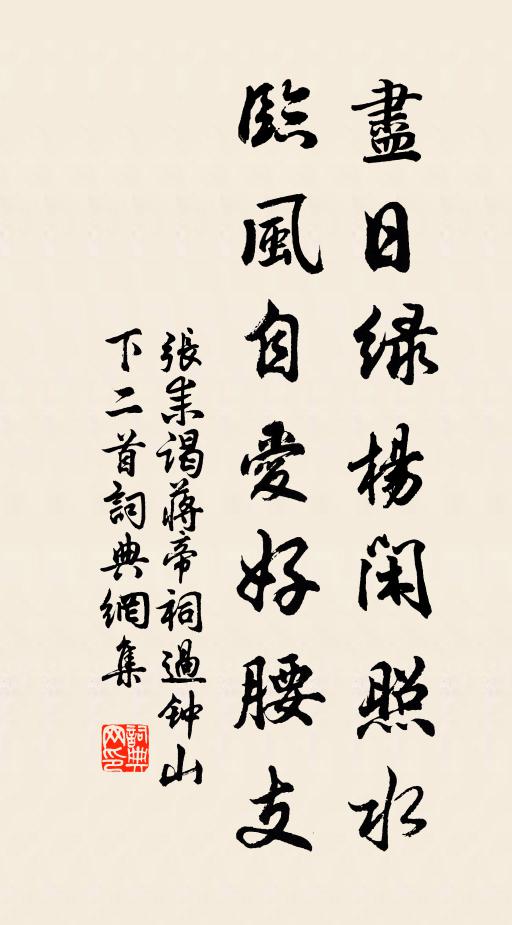 盡日緑楊閑照水
臨風自愛好腰支
張耒謁蔣帝祠過钟山
下二首詞典網集
詞典
网印